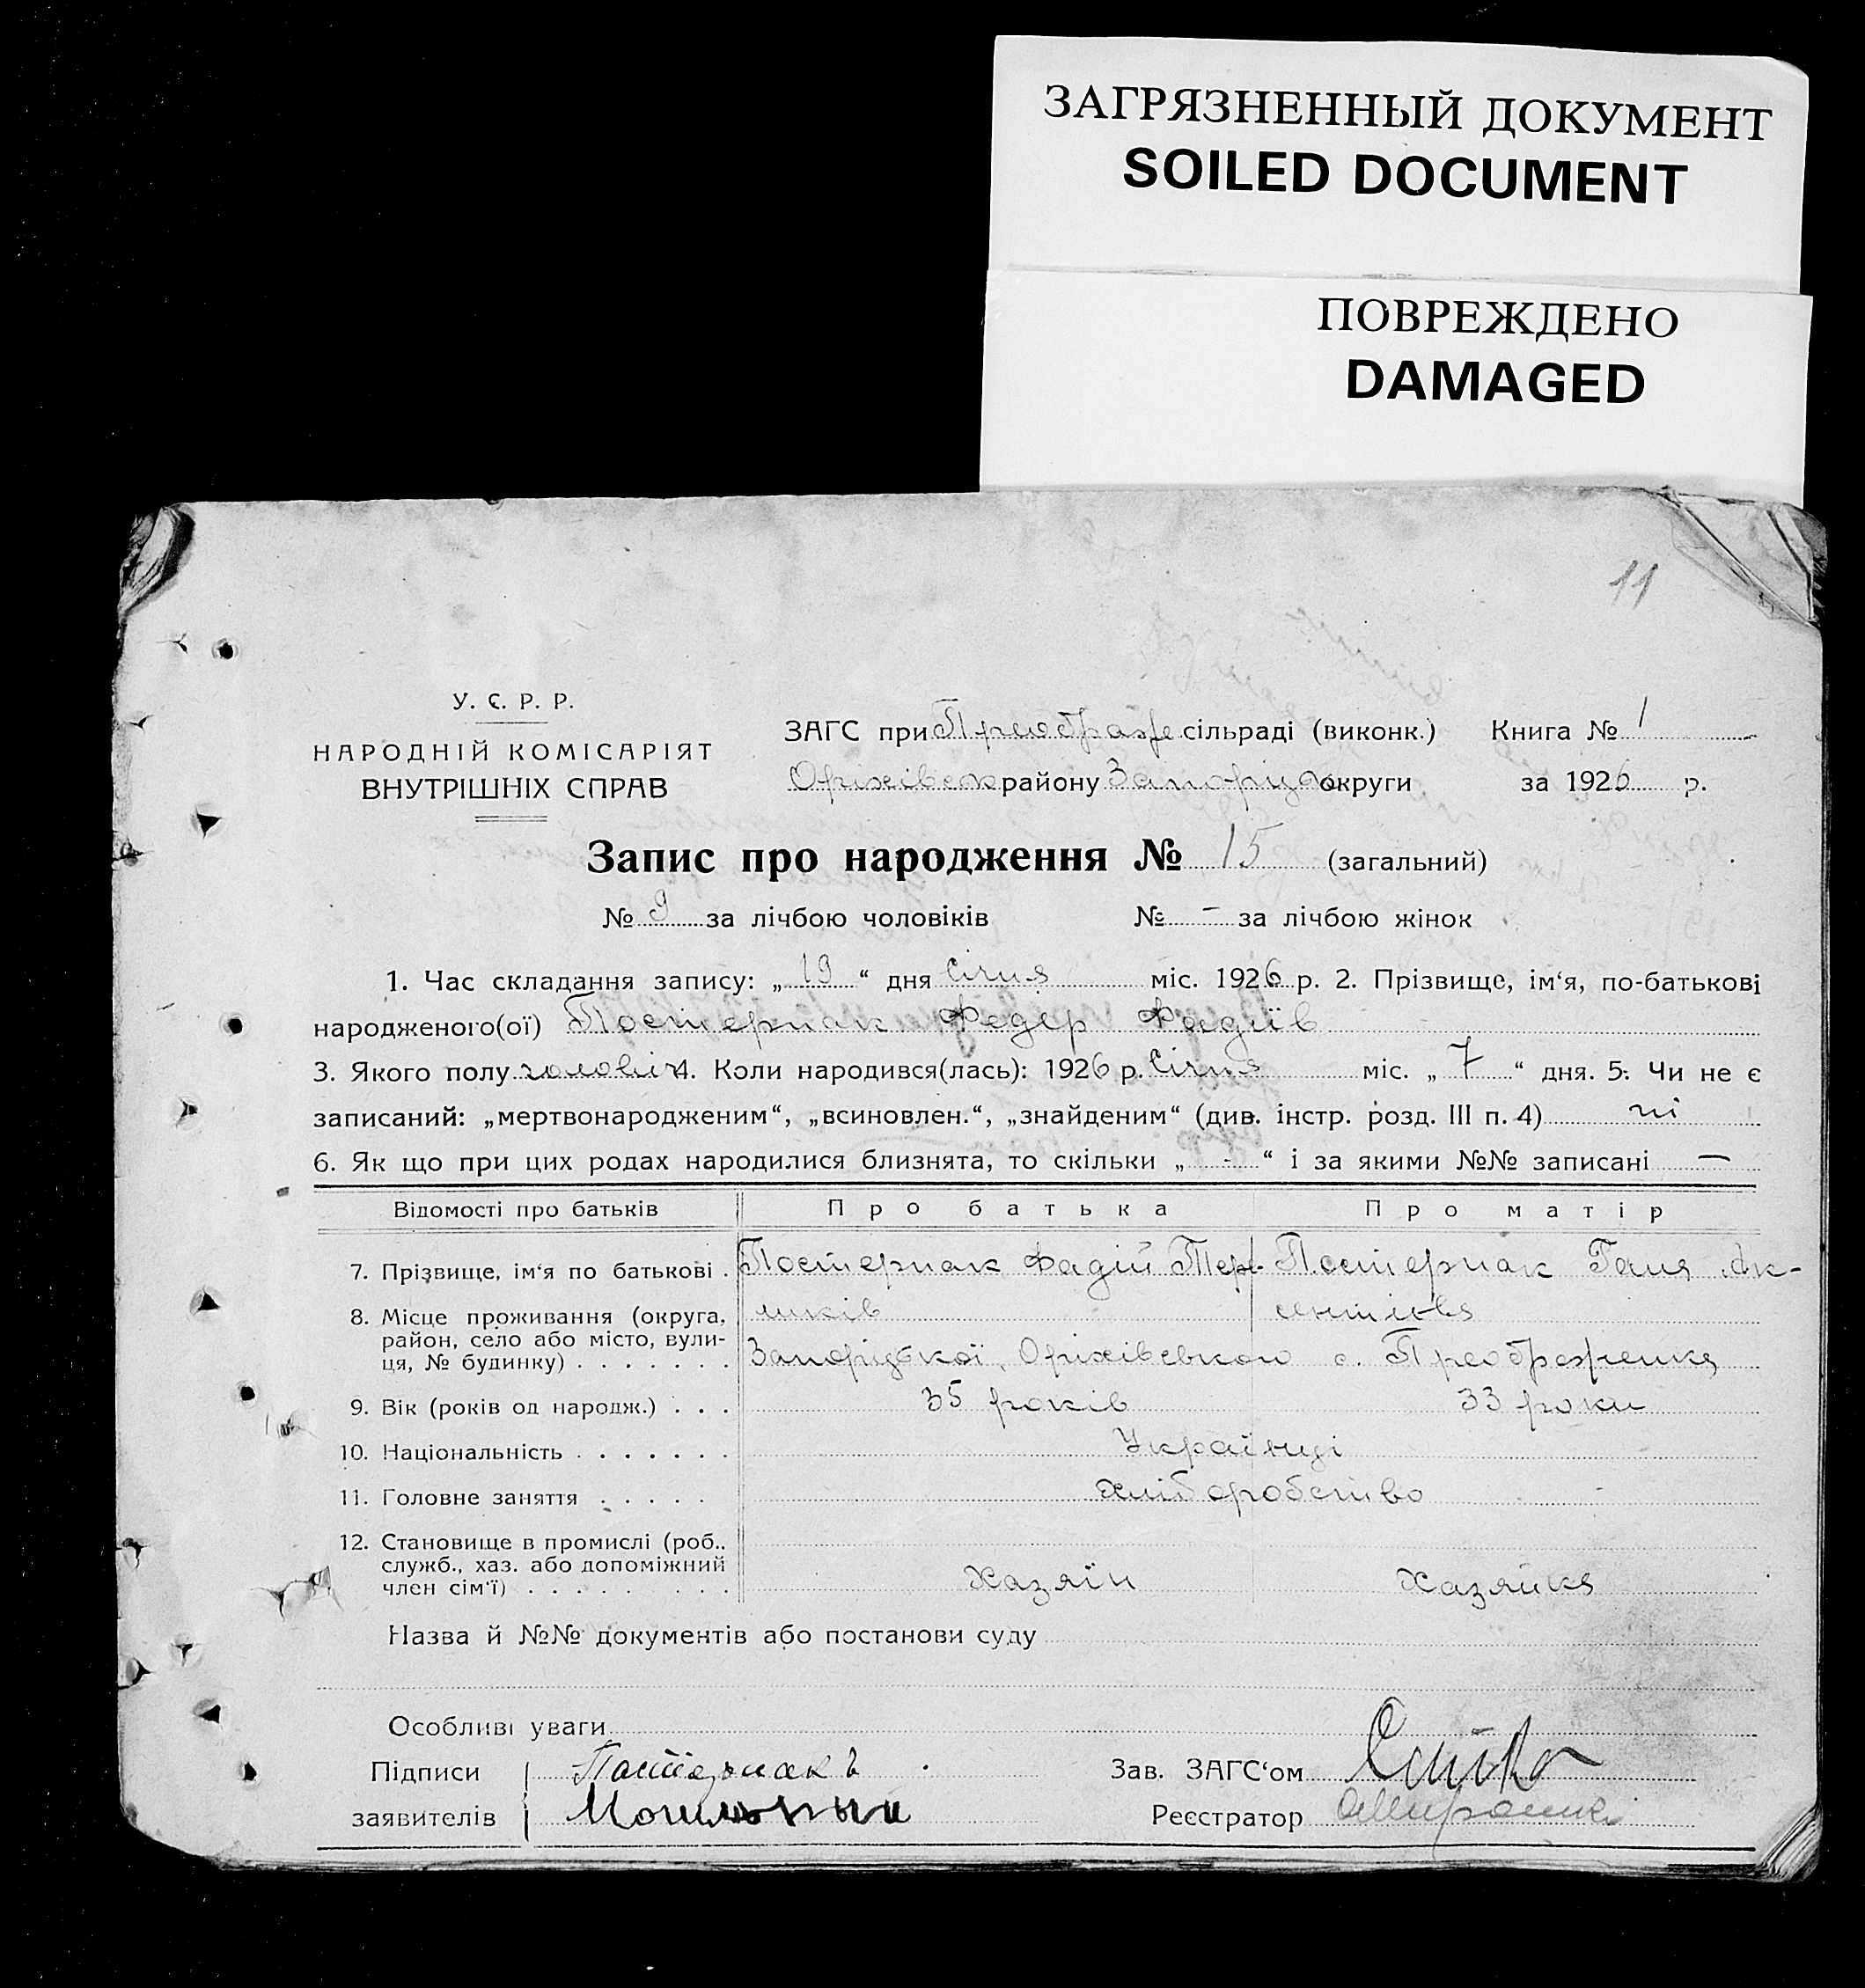 ЗАГРЯЗНЕННЫЙ ДОКУМЕНТ
SOILED DOCUMENT
ПОВРЕЖДЕНО
DAMAGED
11
У. С. Р. Р.
НАРОДНІЙ КОМІСАРІЯТ
ВНУТРІШНІХ СПРАВ
ЗАГС при Преображ сільраді (виконк.) Книга № 1
Оріхівськ району Запоріzьк округи за 1926 р.
Запис про народження № 15 (загальний)
№ 9 за лічбою чоловіків № - за лічбою жінок
1. Час складання запису: „ 19 “ дня Січня міс. 1926 р. 2. Прізвище, ім‘я, по-батькові
народженого(ої) Постернак Федер Фадіїв
3. Якого полу чоловіч 4. Коли народився(лась): 1926 р. Січня міс. „ 7 “ дня. 5. Чи не є
записаний: „мертвонародженим“, „всиновлен.“, „знайденим“ (див. інстр. розд. III п. 4) ні
6. Як що при цих родах народилися близнята, то скільки „ - “ і за якими №№ записані —
Відомості про батьків Про батька Про матір
7. Прізвище, ім‘я по батькові . Постернак Фадій Постернак Ганя Ак-
8. Місце проживання (округа, сентієва
район, село або місто, вули-
ця, № будинку) . . . . . . . Запорізької, Оріхівського с. Преображенка
9. Вік (років од народж.) . . . 35 років 33 роки
10. Національність . . . . . . . Українці
11. Головне заняття . . . . . Хліборобство
12. Становище в промислі (роб..
служб., хаз. або допоміжний
член сім‘ї) . . . . . . . . . Хазяїн Хазяйка
Назва й №№ документів або постанови суду
Особливі уваги
Підписи Пастернакъ Зав. ЗАГС‘ом
заявителів Реєстратор